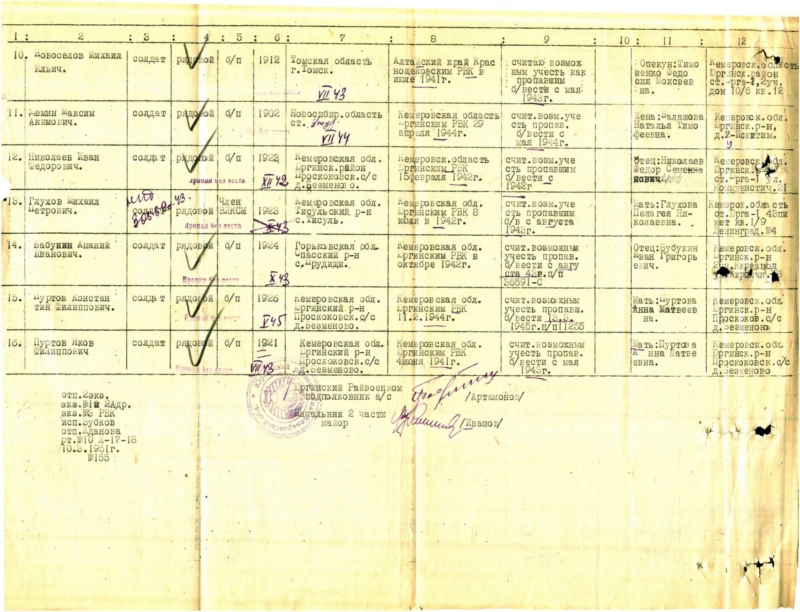 1 : 2 : 3 : 4 : 5 : 6 : 7 : 8 : 9 : 10 : 11 : 12
10. Новоселов Михаил Ильич.
солдат
рядовой
б/п
1912
Томская область г.Томск.
VII 43
Алтайский край Крас
нощековским РВК в
июле 1941г.
считаю возмож
ным учесть как
пропавшим
б/вести с мая
1943г.
Опекун:Тимо
шенко Федо
сия Моисеев
на.
Кемеровск.область
Юргинск.район
дом 10/6 кв.12
11. Демин Максим
Акимович.
солдат
рядовой
б/п
1902
Новосибир.область
ст.
VII 44
Кемеровская область
Юргинским РВК 29
апреля 1944г.
счит.возм.уче
сть пропав.
б/вести с
мая 1944г.
Жена:Балашова
Наталья Тимо
феевна.
Кемеровск.о
Юргинск.р-н,
12. Николаев Иван
Федорович.
солдат
рядовой
б/п
1923
Пропал без вести
XII 42
Кемеровская обл.
Юргинск.район
Проскоковск.с/с
д.Безменово.
Кемеровск.область
Юргинским РВК
15февраля 1942г.
счит.возм.уче
сть пропавшим
б/вести с
1942г
Отец:Николаев
Федор Семенно
вич
Кемеровск.обл.
Юргинск
Коммунистич.21
13. Глухов Михаил
Петрович.
солдат
рядовой
Член
ВЛКСМ
1923
Пропал без вести
X 43
Кемеровская обл.
Тисульский р-н
с.Тисуль.
Кемеровская обл.
Юргинским РВК 8
июля в 1942г.
счит.возм.уче
сть пропавшим
б/в с августа
1943г.
Мать:Глухова
Пелагея Ни-
колаевна.
Кемеров.обл.
ст.Юрга-1 43пи
кет кв.1/9
Ленинград.№4
14. Бабукин Ананий
Иванович.
солдат
рядовой
б/п
1924
Пропал без вести
X 43
Горьковская обл.
Спасский р-н
Кемеровская обл.
Юргинским РВК в
октябре 1942г.
счит.возможным
учесть пропав.
б/вести с авгу
ста 43г.п/п
35591-С
Отец:Бубукин
Иван Григорь
евич.
Кемеровск.обл.
Юргинск.р-н
15. Пуртов Констан
тин Филиппович.
солдат
рядовой
б/п
1926
Пропал без вести
X 45
Кемеровская обл.
Юргинский р-н
Проскоковск.с/с
д.Безменово.
Кемеровская обл.
Юргинским РВК
11.2.1944г.
счит.возможным
учесть пропав.
1945г.п/п11265
Мать:Пуртова
Анна Матвеев
на.
Кемеровск.обл.
Юргинск.р-н
Проскоков.с/с
д.Безменово
16. Пуртов Яков
Филиппович
солдат
рядовой
б/п
1921
Пропал без вести
VII 43
Кемеровская обл.
Юргинский р-н
Проскоковск.с/с
д.Безменово.
Кемеровская обл.
Юргинским РВК
4июня 1941г.
счит.возможным
учесть пропав.
б/вести с мая
1943г.
Мать:Пуртова
Анна Матве
евна.
Кемеровск.обл.
Юргинск.р-н
Проскоковск.с/с
д.Безменово
Юргинский Райвоенком
подполковник а/с /Артамонов/
Начальник 2 части
майор /Ивашов/
отп.2экв.
экз.№1й 2Адр.
экз.№3 РВК
исп.Зубков
отп.Жданова
рт.№10 Л-17-18
10.3.1951г.
№155